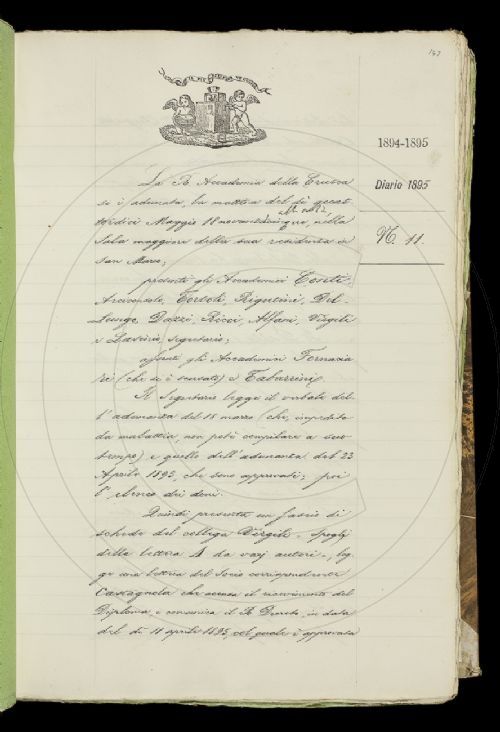 147
1894-1895
Diario 1895
N. 11.
La R. Accademia della Crusca
si è adunata, la mattina del dì quat-
tordici Maggio 18 novantacinque, nella
Sala maggiore della sua residenza in
San Marco;
presenti gli Accademici Conti
Arciconsolo, Tortoli, Rigutini, Del
Lungo, Dazzi, Ricci, Alfani, Virgili
e Lasinio, segretario;
assenti gli Accademici Fornacia-
ri (che si è scusato) e Tabarrini.
Il Segretario legge il verbale del-
l'adunanza del 18 marzo (che, impedito
da malattia, non potè compilare a suo
tempo) e quello dell'adunanza del 23
Aprile 1895, che sono approvati; poi
l'elenco dei doni.
Quindi presenta un fascio di
schede del collega Virgili - spogli
della lettera A da varj autori -, leg-
ge una lettera del Socio corrispondente
Castagnola che accusa il ricevimento del
Diploma, e comunica il R. Decreto, in data
del dì 11 aprile 1895, col quale è approvata